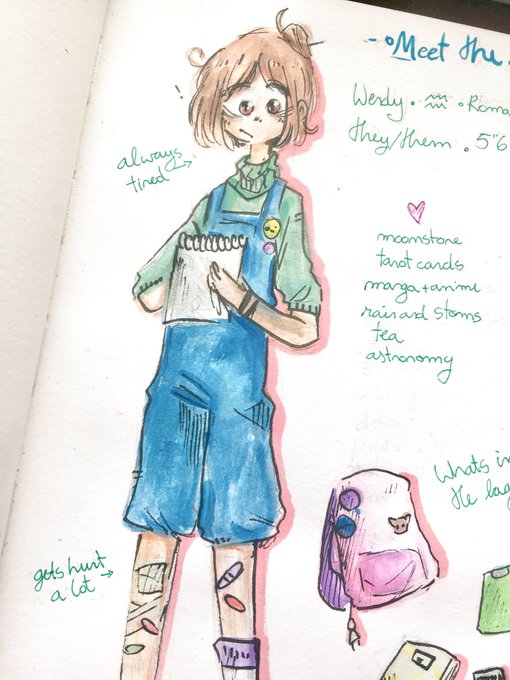 Meet the
Werdy . ♒ . Roma
they/them . 5"6
always
tired
moonstone
tarot cards
manga + anime
rain and storms
tea
astronomy
Whats in
the bag
gets hurt
a lot